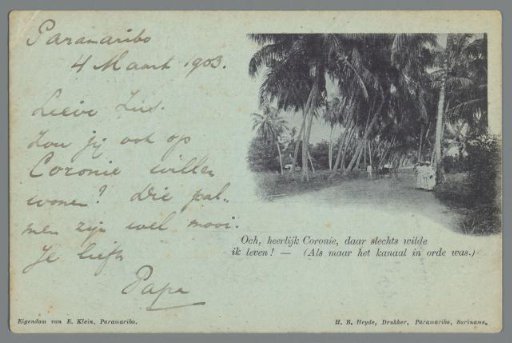 Paramaribo
4 Maart 1903.
Lieve Zus.
Zou jij ook op
Coronie willen
wonen? Die pal-
men zijn wel mooi.
Je liefh
Papa
Och, heerlijk Coronie, daar slechts wilde
ik leven! — (Als maar het kanaal in orde was.)
Eigendom van E. Klein, Paramaribo.
H. B. Heyde, Drukker, Paramaribo, Suriname.